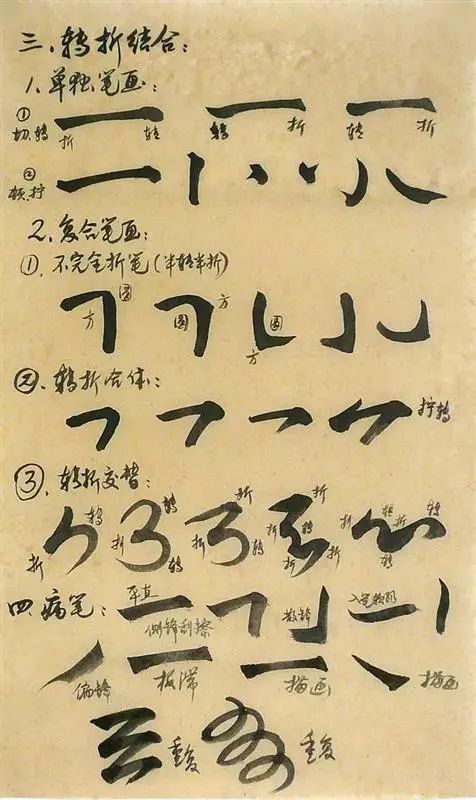 三、转折结合：
1.单独笔画：
①切.转 折 转 转 折 转 折
②顿.拧
2.复合笔画：
①.不完全折笔(半转半折)
方 圆 圆 方 圆 方
②.转折合体：
拧转
③.转折交替：
折 转 折 转 转 折 折 转 折 折 转 折 折 折 转 折 转 转
四.病笔：
平直 侧锋刮擦 散锋 入笔
偏锋 板滞 描画 描画
重复 重复